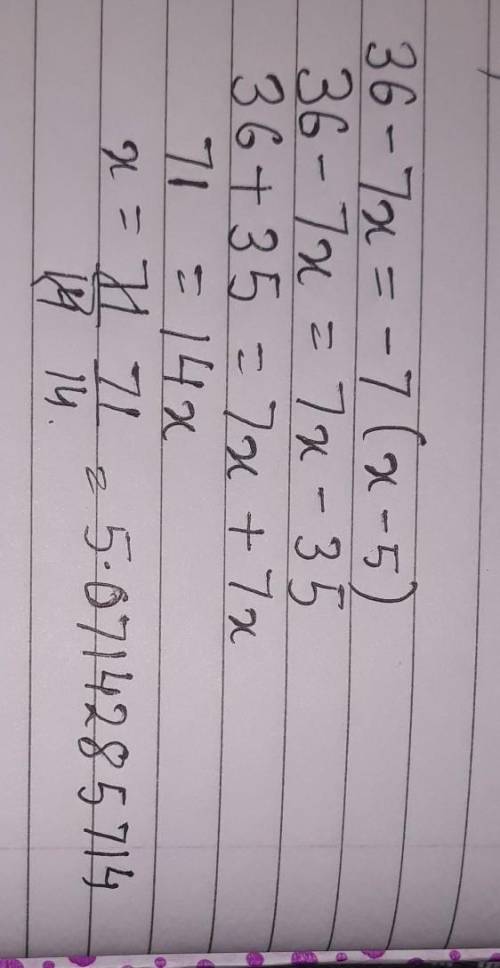 36 - 7x = - 7 (x - 5)
36 - 7x = 7x - 35
36 + 35 = 7x + 7x
71 = 14x
x = 71/14 71/14. = 5.0714285714